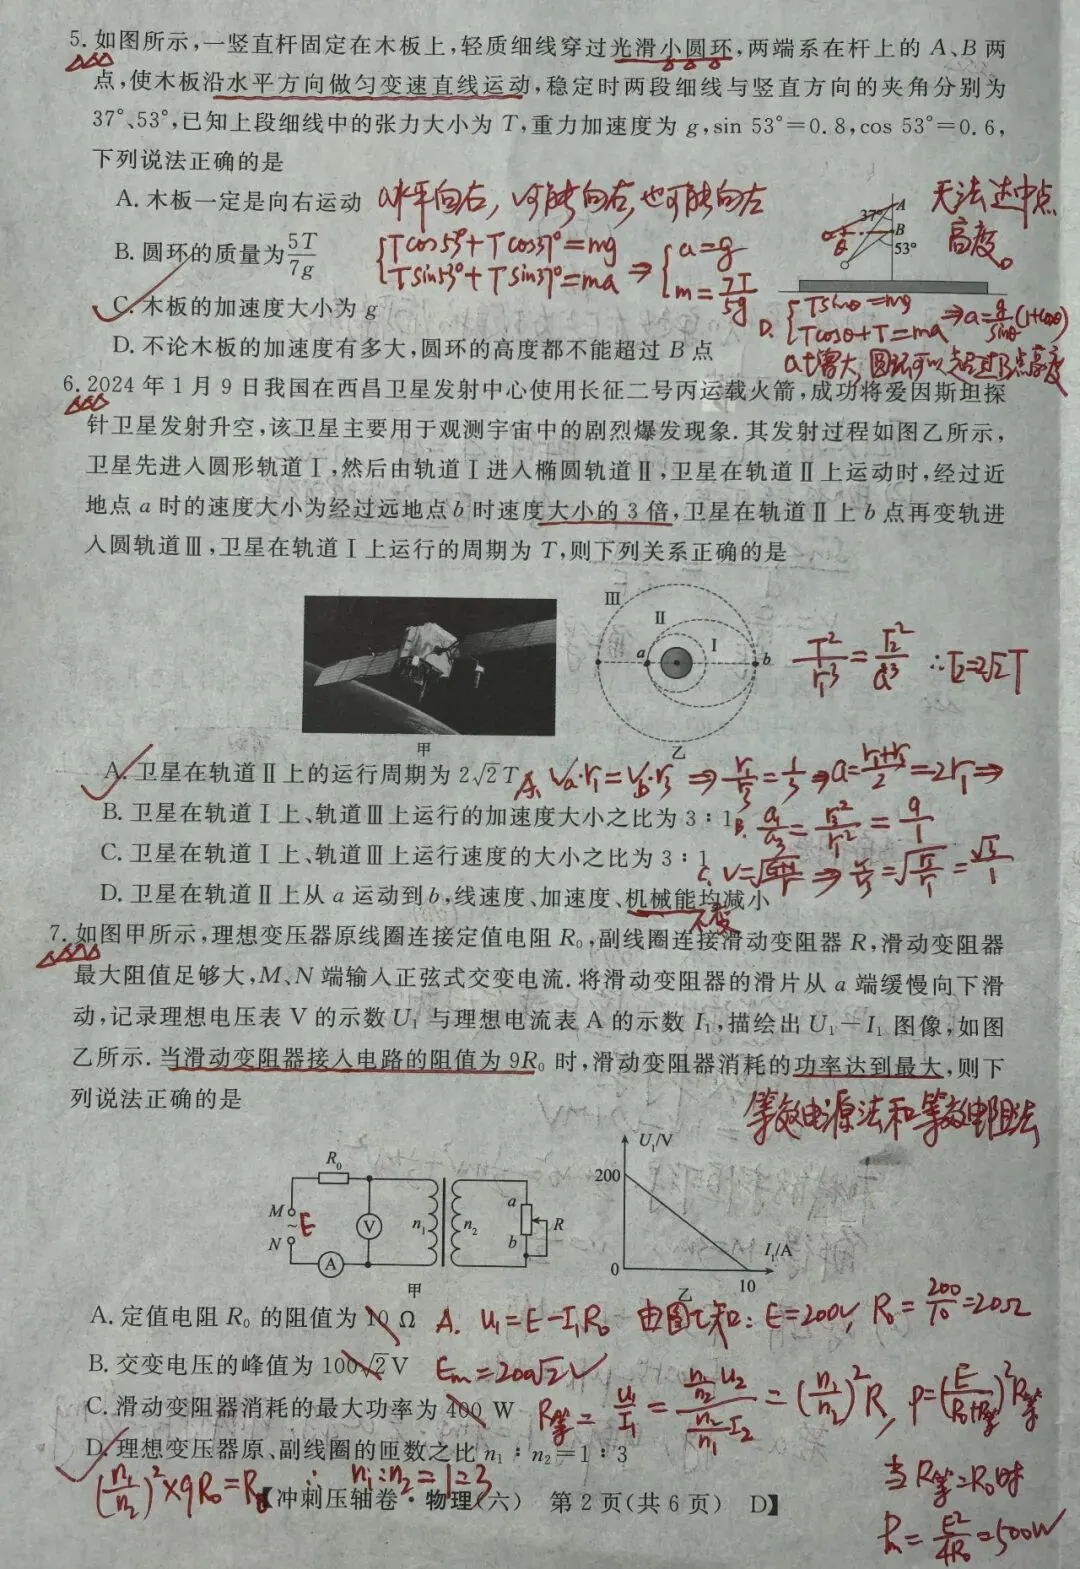 5. 如图所示,一竖直杆固定在木板上,轻质细线穿过光滑小圆环,两端系在杆上的 A、B 两
点,使木板沿水平方向做匀变速直线运动,稳定时两段细线与竖直方向的夹角分别为
37°、53°,已知上段细线中的张力大小为 T,重力加速度为 g,sin 53°=0.8,cos 53°=0.6,
下列说法正确的是
A. 木板一定是向右运动
a水平向右, 可能向右,也可能向左
B. 圆环的质量为5T/7g
{Tcos53°+Tcos37°=mg
Tsin53°+Tsin37°=ma ⇒ {a=g
m=7T/5g
37° A
B
53°
无法达中点
高度。
C. 木板的加速度大小为 g
D. {Tsinθ=mg
Tcosθ+T=ma ⇒a=g/sinθ(1+cosθ)
D. 不论木板的加速度有多大,圆环的高度都不能超过 B 点
a增大,圆环可以超过B点高度
6. 2024 年 1 月 9 日我国在西昌卫星发射中心使用长征二号丙运载火箭,成功将爱因斯坦探
针卫星发射升空,该卫星主要用于观测宇宙中的剧烈爆发现象. 其发射过程如图乙所示,
卫星先进入圆形轨道Ⅰ,然后由轨道Ⅰ进入椭圆轨道Ⅱ,卫星在轨道Ⅱ上运动时,经过近
地点 a 时的速度大小为经过远地点 b 时速度大小的 3 倍,卫星在轨道Ⅱ上 b 点再变轨进
入圆轨道Ⅲ,卫星在轨道Ⅰ上运行的周期为 T,则下列关系正确的是
Ⅲ Ⅱ Ⅰ a b
T²/r₁³=T₂²/a³ ∴T₂=2√2T
甲 乙
A. 卫星在轨道Ⅱ上的运行周期为 2√2T
A. Va·r₁=Vb·r₃ ⇒ r₁/r₃=1/3 ⇒a=(r₁+r₃)/2=2r₁⇒
B. 卫星在轨道Ⅰ上、轨道Ⅲ上运行的加速度大小之比为 3∶1
B. a₁/a₃=r₃²/r₁²=9/1
C. 卫星在轨道Ⅰ上、轨道Ⅲ上运行速度的大小之比为 3∶1
D. 卫星在轨道Ⅱ上从 a 运动到 b,线速度、加速度、机械能均减小
不变
7. 如图甲所示,理想变压器原线圈连接定值电阻 R₀,副线圈连接滑动变阻器 R,滑动变阻器
最大阻值足够大,M、N 端输入正弦式交变电流. 将滑动变阻器的滑片从 a 端缓慢向下滑
动,记录理想电压表 V 的示数 U₁ 与理想电流表 A 的示数 I₁,描绘出 U₁－I₁ 图像,如图
乙所示. 当滑动变阻器接入电路的阻值为 9R₀ 时,滑动变阻器消耗的功率达到最大,则下
列说法正确的是
等效电源法和等效电阻法
R₀
M
~ E
N
V
A
n₁ n₂
a
b
R
甲
U₁/V
200
0
10
I₁/A
乙
A. 定值电阻 R₀ 的阻值为 10 Ω
A. U₁=E-I₁R₀ 由图乙知: E=200V, R₀=200/10=20Ω
B. 交变电压的峰值为 100√2 V
Em=200√2V
C. 滑动变阻器消耗的最大功率为 400 W
R等=U₁/I₁=(n₁/n₂U₂)/(n₂/n₁I₂)=(n₁/n₂)²R, P=(E/(R₀+R等))²R等
D. 理想变压器原、副线圈的匝数之比 n₁∶n₂=1∶3
(n₁/n₂)²×9R₀=R₀ ∴ n₁:n₂=1:3
当R等=R₀时
Pm=E²/4R₀=500W
【冲刺压轴卷·物理(六) 第 2 页(共 6 页) D】